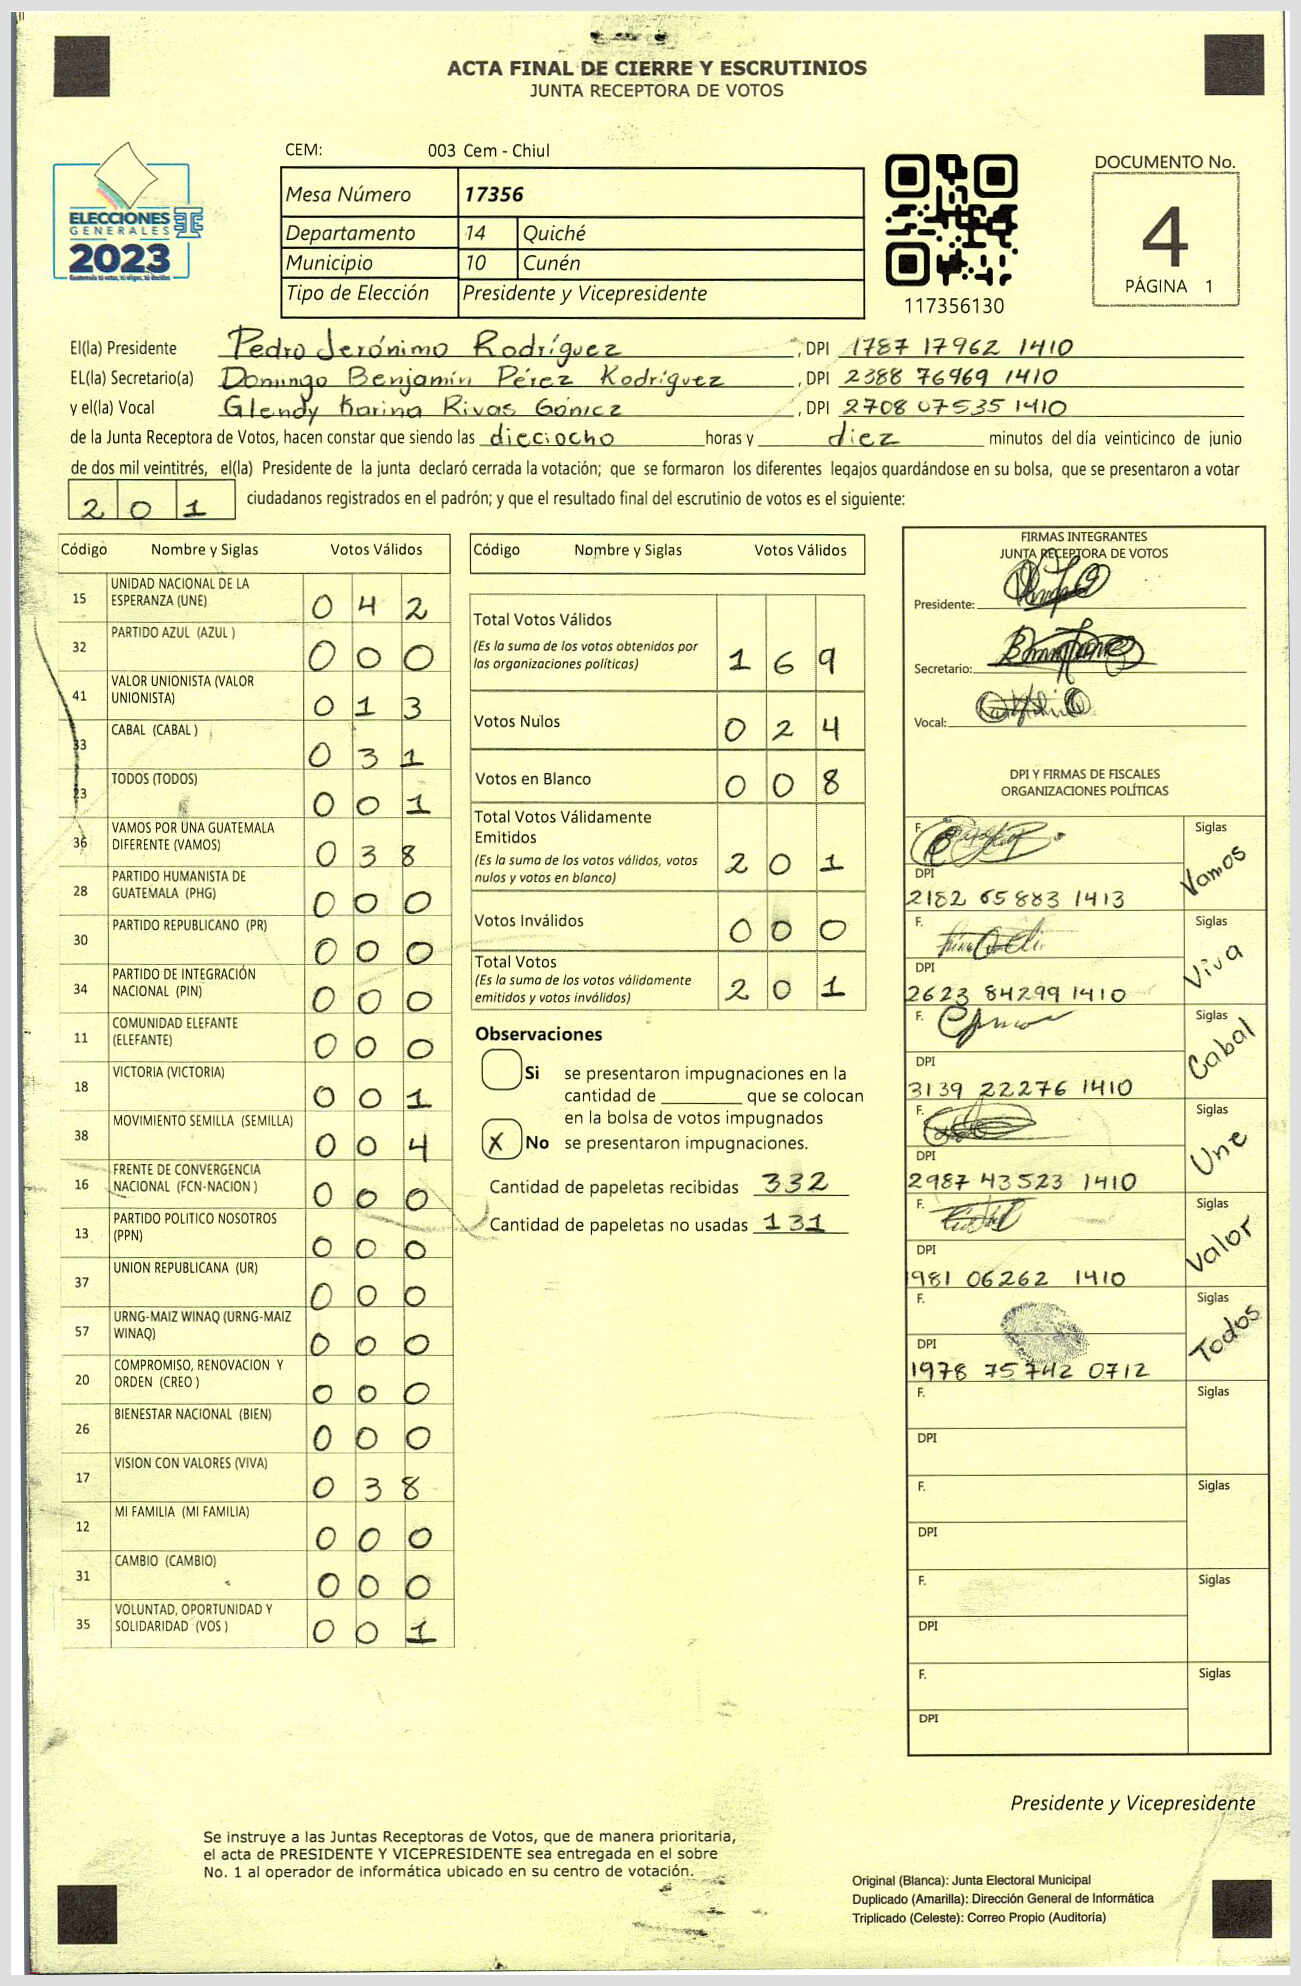 ACTA FINAL DE CIERRE Y ESCRUTINIOS
JUNTA RECEPTORA DE VOTOS
CEM: 003 Cem - Chiul
Mesa Número 17356
Departamento 14 Quiché
Municipio 10 Cunén
Tipo de Elección Presidente y Vicepresidente
ELECCIONES
GENERALES
2023
117356130
DOCUMENTO No.
4
PÁGINA 1
El(la) Presidente Pedro Jerónimo Rodríguez, DPI 1787 17962 1410
EL(la) Secretario(a) Domingo Benjamín Pérez Rodríguez, DPI 2388 76969 1410
y el(la) Vocal Glendy Karina Rivas Gómez, DPI 2708 07535 1410
de la Junta Receptora de Votos, hacen constar que siendo las dieciocho horas y diez minutos del día veinticinco de junio
de dos mil veintitrés, el(la) Presidente de la junta declaró cerrada la votación; que se formaron los diferentes legajos guardándose en su bolsa, que se presentaron a votar
201 ciudadanos registrados en el padrón; y que el resultado final del escrutinio de votos es el siguiente:
Código Nombre y Siglas Votos Válidos
15 UNIDAD NACIONAL DE LA ESPERANZA (UNE) 0 4 2
32 PARTIDO AZUL (AZUL ) 0 0 0
41 VALOR UNIONISTA (VALOR UNIONISTA) 0 1 3
33 CABAL (CABAL ) 0 3 1
23 TODOS (TODOS) 0 0 1
36 VAMOS POR UNA GUATEMALA DIFERENTE (VAMOS) 0 3 8
28 PARTIDO HUMANISTA DE GUATEMALA (PHG) 0 0 0
30 PARTIDO REPUBLICANO (PR) 0 0 0
34 PARTIDO DE INTEGRACIÓN NACIONAL (PIN) 0 0 0
11 COMUNIDAD ELEFANTE (ELEFANTE) 0 0 0
18 VICTORIA (VICTORIA) 0 0 1
38 MOVIMIENTO SEMILLA (SEMILLA) 0 0 4
16 FRENTE DE CONVERGENCIA NACIONAL (FCN-NACION ) 0 0 0
13 PARTIDO POLITICO NOSOTROS (PPN) 0 0 0
37 UNION REPUBLICANA (UR) 0 0 0
57 URNG-MAIZ WINAQ (URNG-MAIZ WINAQ) 0 0 0
20 COMPROMISO, RENOVACION Y ORDEN (CREO ) 0 0 0
26 BIENESTAR NACIONAL (BIEN) 0 0 0
17 VISION CON VALORES (VIVA) 0 3 8
12 MI FAMILIA (MI FAMILIA) 0 0 0
31 CAMBIO (CAMBIO) 0 0 0
35 VOLUNTAD, OPORTUNIDAD Y SOLIDARIDAD (VOS ) 0 0 1
Código Nombre y Siglas Votos Válidos
Total Votos Válidos
(Es la suma de los votos obtenidos por
las organizaciones políticas) 1 6 9
Votos Nulos 0 2 4
Votos en Blanco 0 0 8
Total Votos Válidamente
Emitidos
(Es la suma de los votos válidos, votos
nulos y votos en blanco) 2 0 1
Votos Inválidos 0 0 0
Total Votos
(Es la suma de los votos válidamente
emitidos y votos inválidos) 2 0 1
Observaciones
Si se presentaron impugnaciones en la
cantidad de ________ que se colocan
en la bolsa de votos impugnados
X No se presentaron impugnaciones.
Cantidad de papeletas recibidas 332
Cantidad de papeletas no usadas 131
FIRMAS INTEGRANTES
JUNTA RECEPTORA DE VOTOS
Presidente:
Secretario:
Vocal:
DPI Y FIRMAS DE FISCALES
ORGANIZACIONES POLÍTICAS
F. Siglas Vamos
DPI
2182 65883 1413
F. Siglas Viva
DPI
2623 84299 1410
F. Siglas Cabal
DPI
3139 22276 1410
F. Siglas Une
DPI
2987 43523 1410
F. Siglas Valor
DPI
1981 06262 1410
F. Siglas Todos
DPI
1978 75742 0712
F. Siglas
DPI
F. Siglas
DPI
F. Siglas
DPI
F. Siglas
DPI
Presidente y Vicepresidente
Se instruye a las Juntas Receptoras de Votos, que de manera prioritaria,
el acta de PRESIDENTE Y VICEPRESIDENTE sea entregada en el sobre
No. 1 al operador de informática ubicado en su centro de votación.
Original (Blanca): Junta Electoral Municipal
Duplicado (Amarilla): Dirección General de Informática
Triplicado (Celeste): Correo Propio (Auditoría)